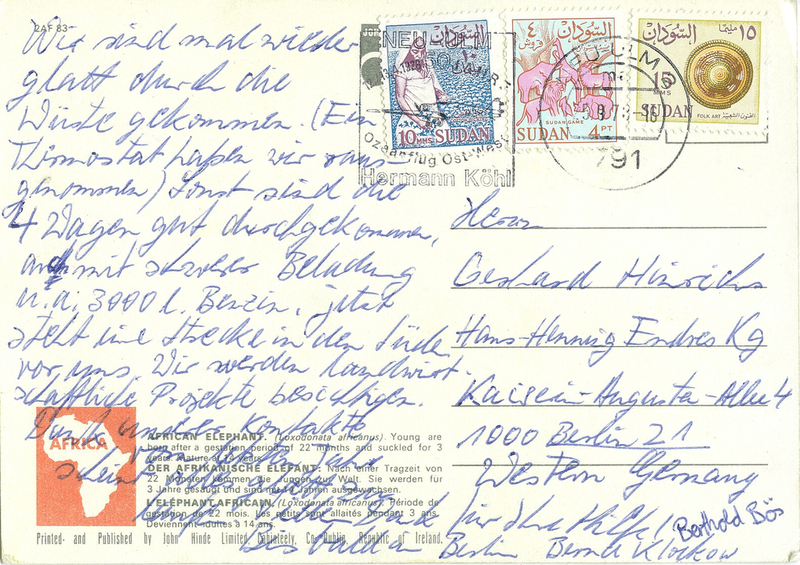 2AF 83
Wir sind mal wieder
glatt durch die
Wüste gekommen. (Ein
Thermostat haben wir raus-
genommen) Sonst sind die
4 Wagen gut durchgekommen,
auch mit schwerer Beladung
u.a. 3000 l. Benzin, jetzt
steht eine Strecke in den Süden
vor uns. Wir werden landwirt-
schaftliche Projekte besichtigen.
Durch unsere Kontakte
für Ihre Hilfe
Bis bald in Berlin Bernd Klockow
Berthold Bös
NEU-ULM
Ozeanflug Ost-West
Hermann Köhl
السودان
١٠
10 MMS SUDAN
السودان
٤
قروش
SUDAN GAME
SUDAN 4 PT
السودان
١٥ مليما
15
MMS
SUDAN
FOLK ART الفنون الشعبية
791
Herrn
Gerhard Hinrichs
Hans-Henning Endres Kg
Kaiserin-Augusta-Allee 4
1000 Berlin 21
Western Germany
AFRICA
AFRICAN ELEPHANT. (Loxodonata africanus). Young are
born after a gestation period of 22 months and suckled for 3
years. Mature at 14 years.
DER AFRIKANISCHE ELEFANT: Nach einer Tragzeit von
22 Monaten kommen die Jungen zur Welt. Sie werden für
3 Jahre gesäugt und sind mit 14 Jahren ausgewachsen.
L'ELEPHANT AFRICAIN. (Loxodonata africanus). Période de
gestation de 22 mois. Les petits sont allaités pendant 3 ans.
Deviennent adultes à 14 ans.
Printed and Published by John Hinde Limited, Cabinteely, Co. Dublin, Republic of Ireland.